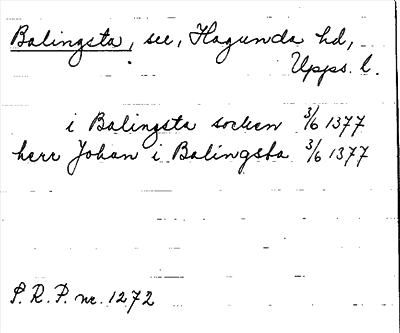 Balingsta, see, Hagunda hd,
Upps. l.
i Balingsta socken 3/6 1377
herr Johan i Balingsta 3/6 1377
S. R. P. nr. 1272